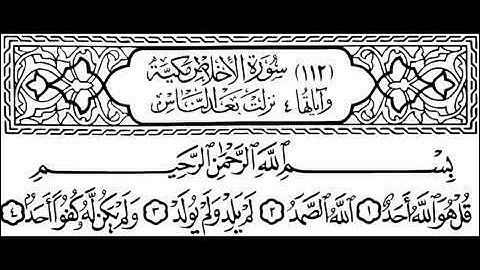 (١١٢) سُورَةُ الإِخْلَاصِ مَكِّيَّة
وَآيَاتُهَا ٤ نَزَلَتْ بَعْدَ النَّاسِ
بِسْمِ ٱللَّهِ ٱلرَّحْمَٰنِ ٱلرَّحِيمِ
قُلْ هُوَ ٱللَّهُ أَحَدٌ ١ ٱللَّهُ ٱلصَّمَدُ ٢ لَمْ يَلِدْ وَلَمْ يُولَدْ ٣ وَلَمْ يَكُن لَّهُۥ كُفُوًا أَحَدٌۢ ٤